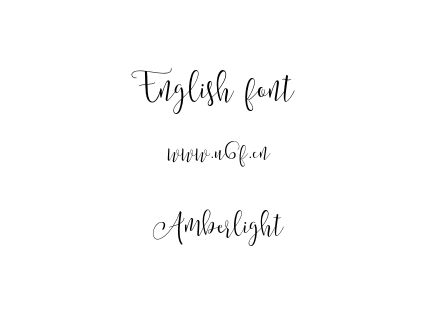 English font
www.u6f.cn
Amberlight